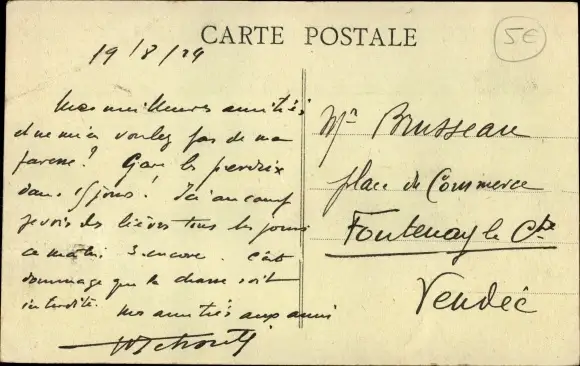 CARTE POSTALE
5€
19/8/29
Mes meilleures amitiés
et ne m'en voulez pas de ma
paresse? Gare les perdrix
dans 15 jours! Ici au camp
je vois des lièvres tous les jours
ce matin 3 encore. C'est
dommage que la chasse soit
interdite. Mes amitiés aux amis
Mr Brusseau
place du Commerce
Fontenay le Cte
Vendée